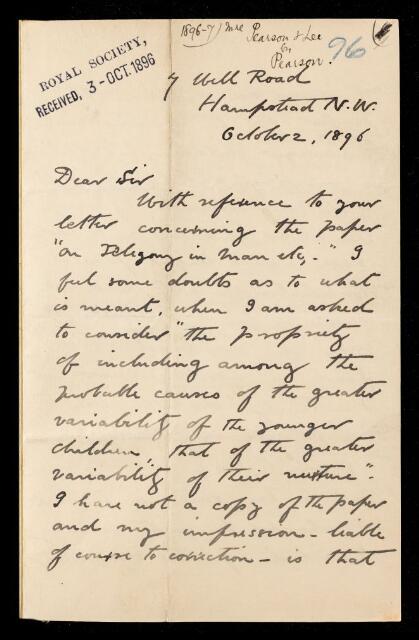 1896-7) Miss Pearson & Lee
by
Pearson.
96
ROYAL SOCIETY,
RECEIVED, 3-OCT.1896
7 Well Road
Hampstead N.W.
October 2, 1896
Dear Sir
With reference to your
letter concerning the paper
"on Telegony in Man etc," I
feel some doubts as to what
is meant, when I am asked
to consider "the propriety
of including among the
probable causes of the greater
variability of the younger
children, that of the greater
variability of their nurture".
I have not a copy of the paper
and my impression - liable
of course to correction - is that